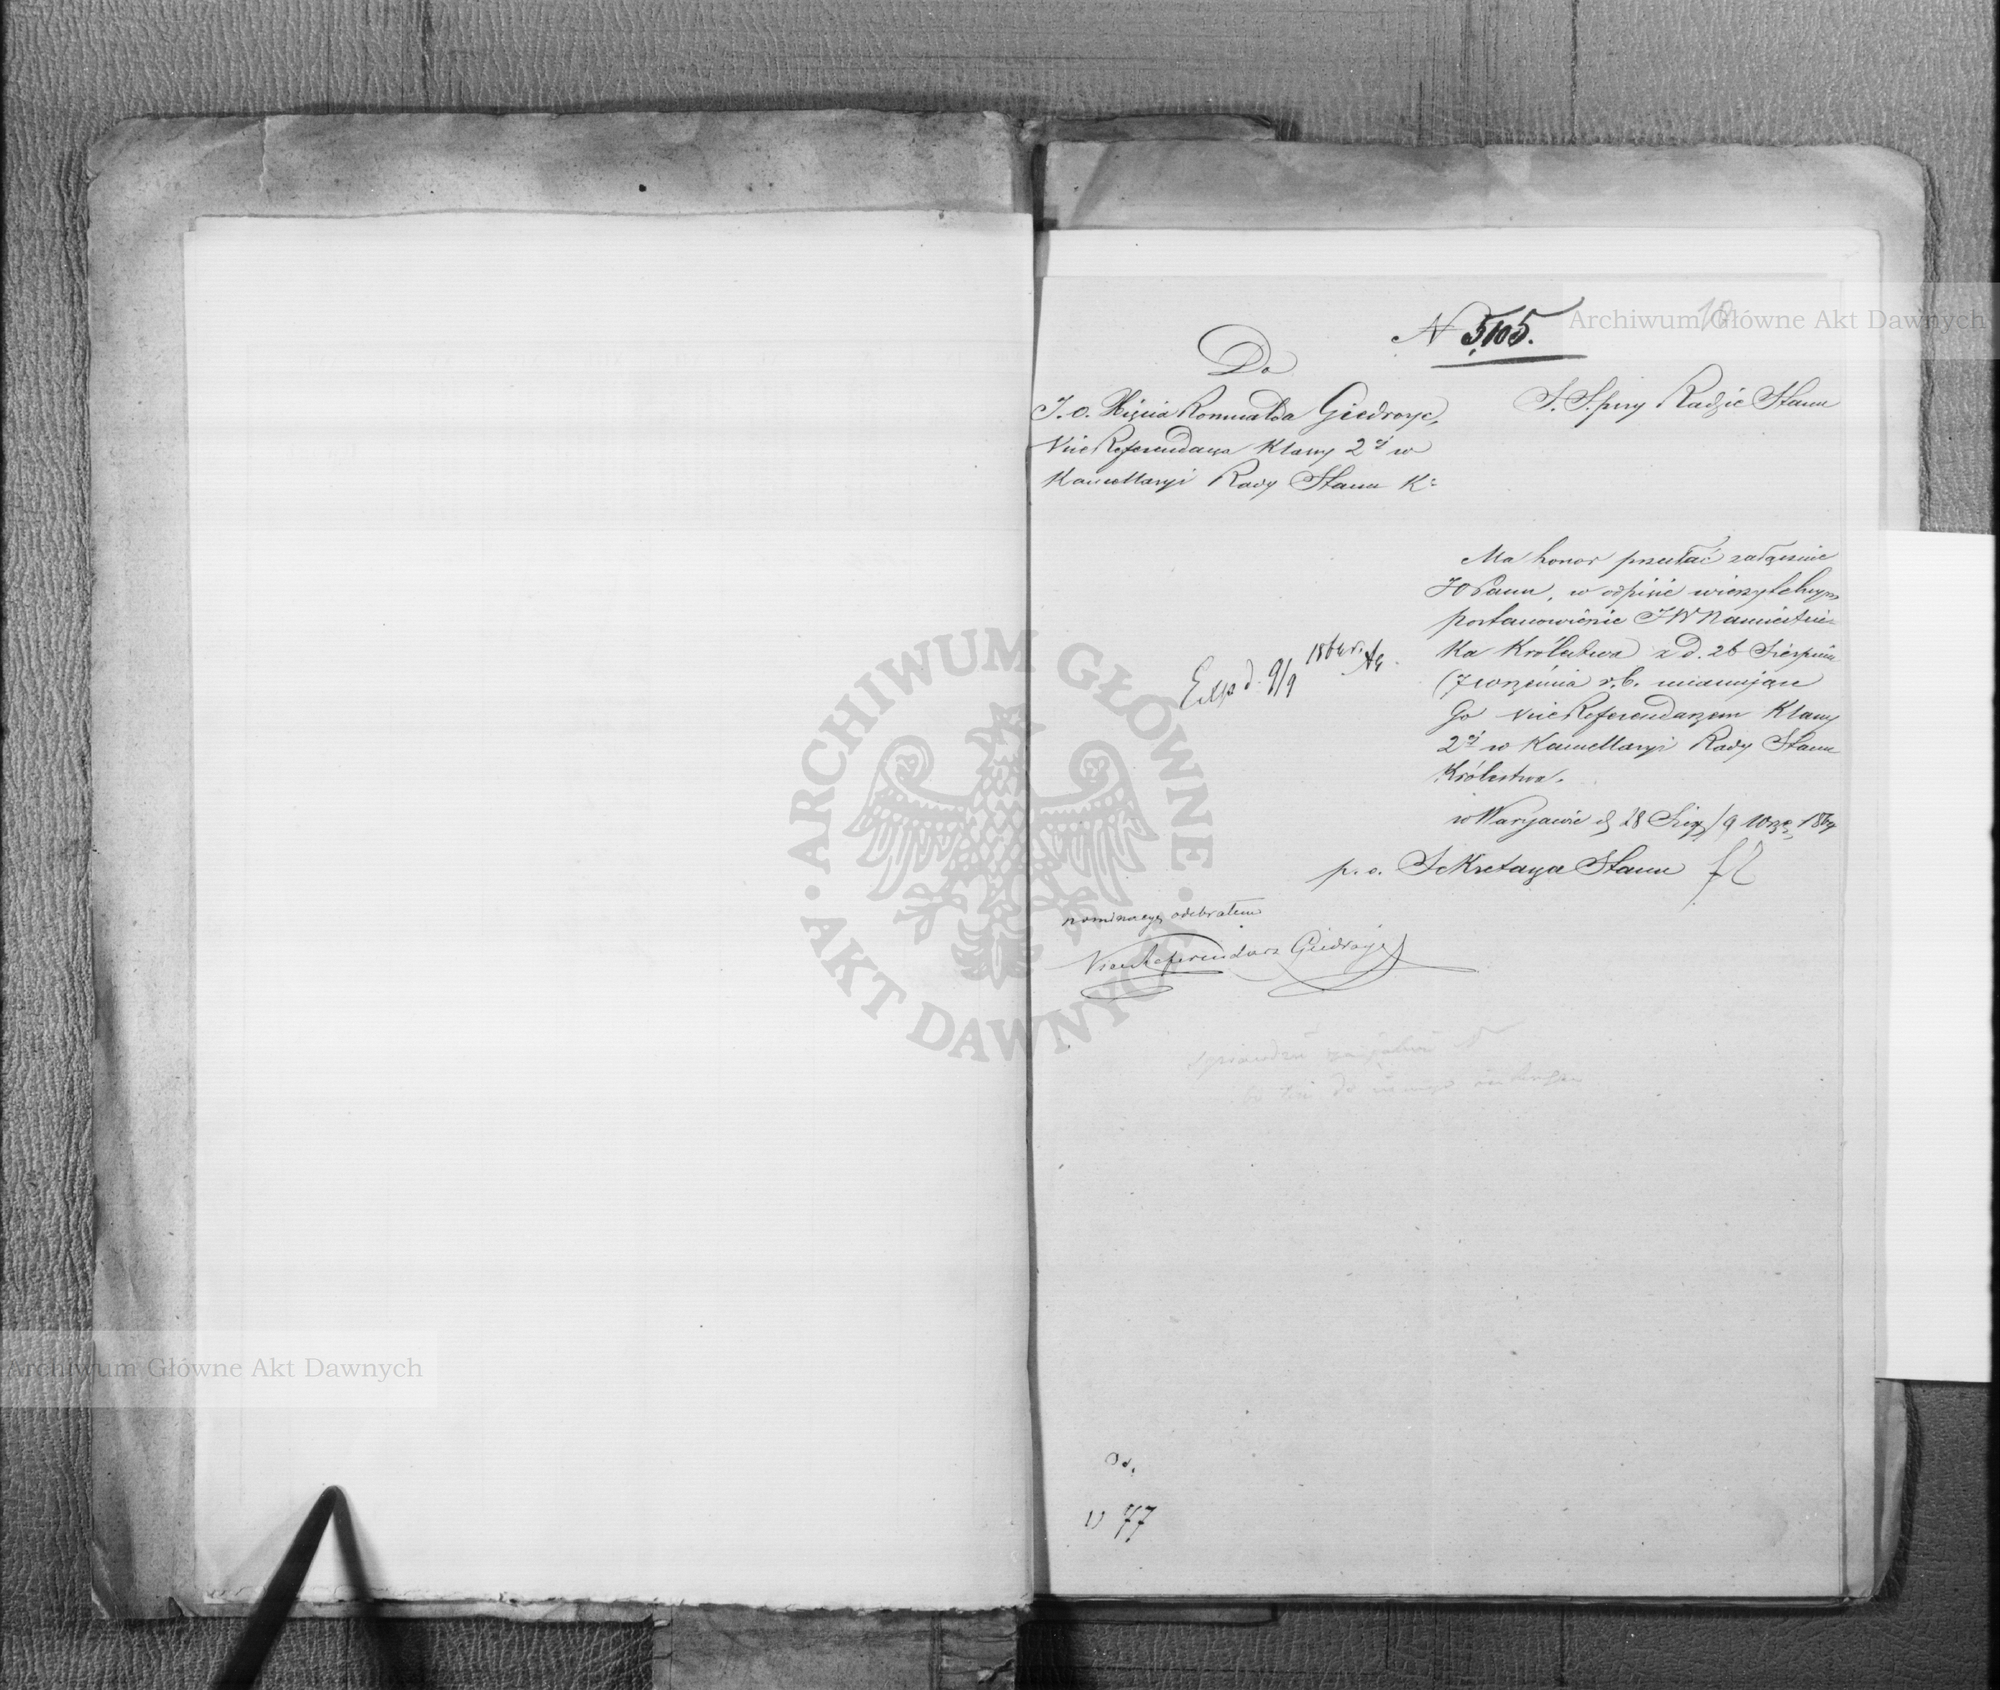 10
N 5,105.
Do
J. O. Xięcia Romualda Giedroyc,
ViceReferendarza Klassy 2éj w
Kancellaryi Rady Stanu K:
S. S. przy Radzie Stanu
Ma honor przesłać załącznie
JOPanu, w odpisie wierzytelnym
postanowienie JWNamiestni-
ka Królestwa z d. 26 Sierpnia
(7 września r. b. mianujące
Go ViceReferendarzem Klassy
2éj w Kancellaryi Rady Stanu
Królestwa.
Exp d. 9/9 1864 r.
w Warszawie d. 28 Sierp/9 Wrze 1864
p. o. Sekretarza Stanu
nominacyę odebrałem
ViceReferendarz Giedroyc
Sprawdzić
do
77
Archiwum Główne Akt Dawnych
ARCHIWUM GŁÓWNE AKT DAWNYCH
Archiwum Główne Akt Dawnych